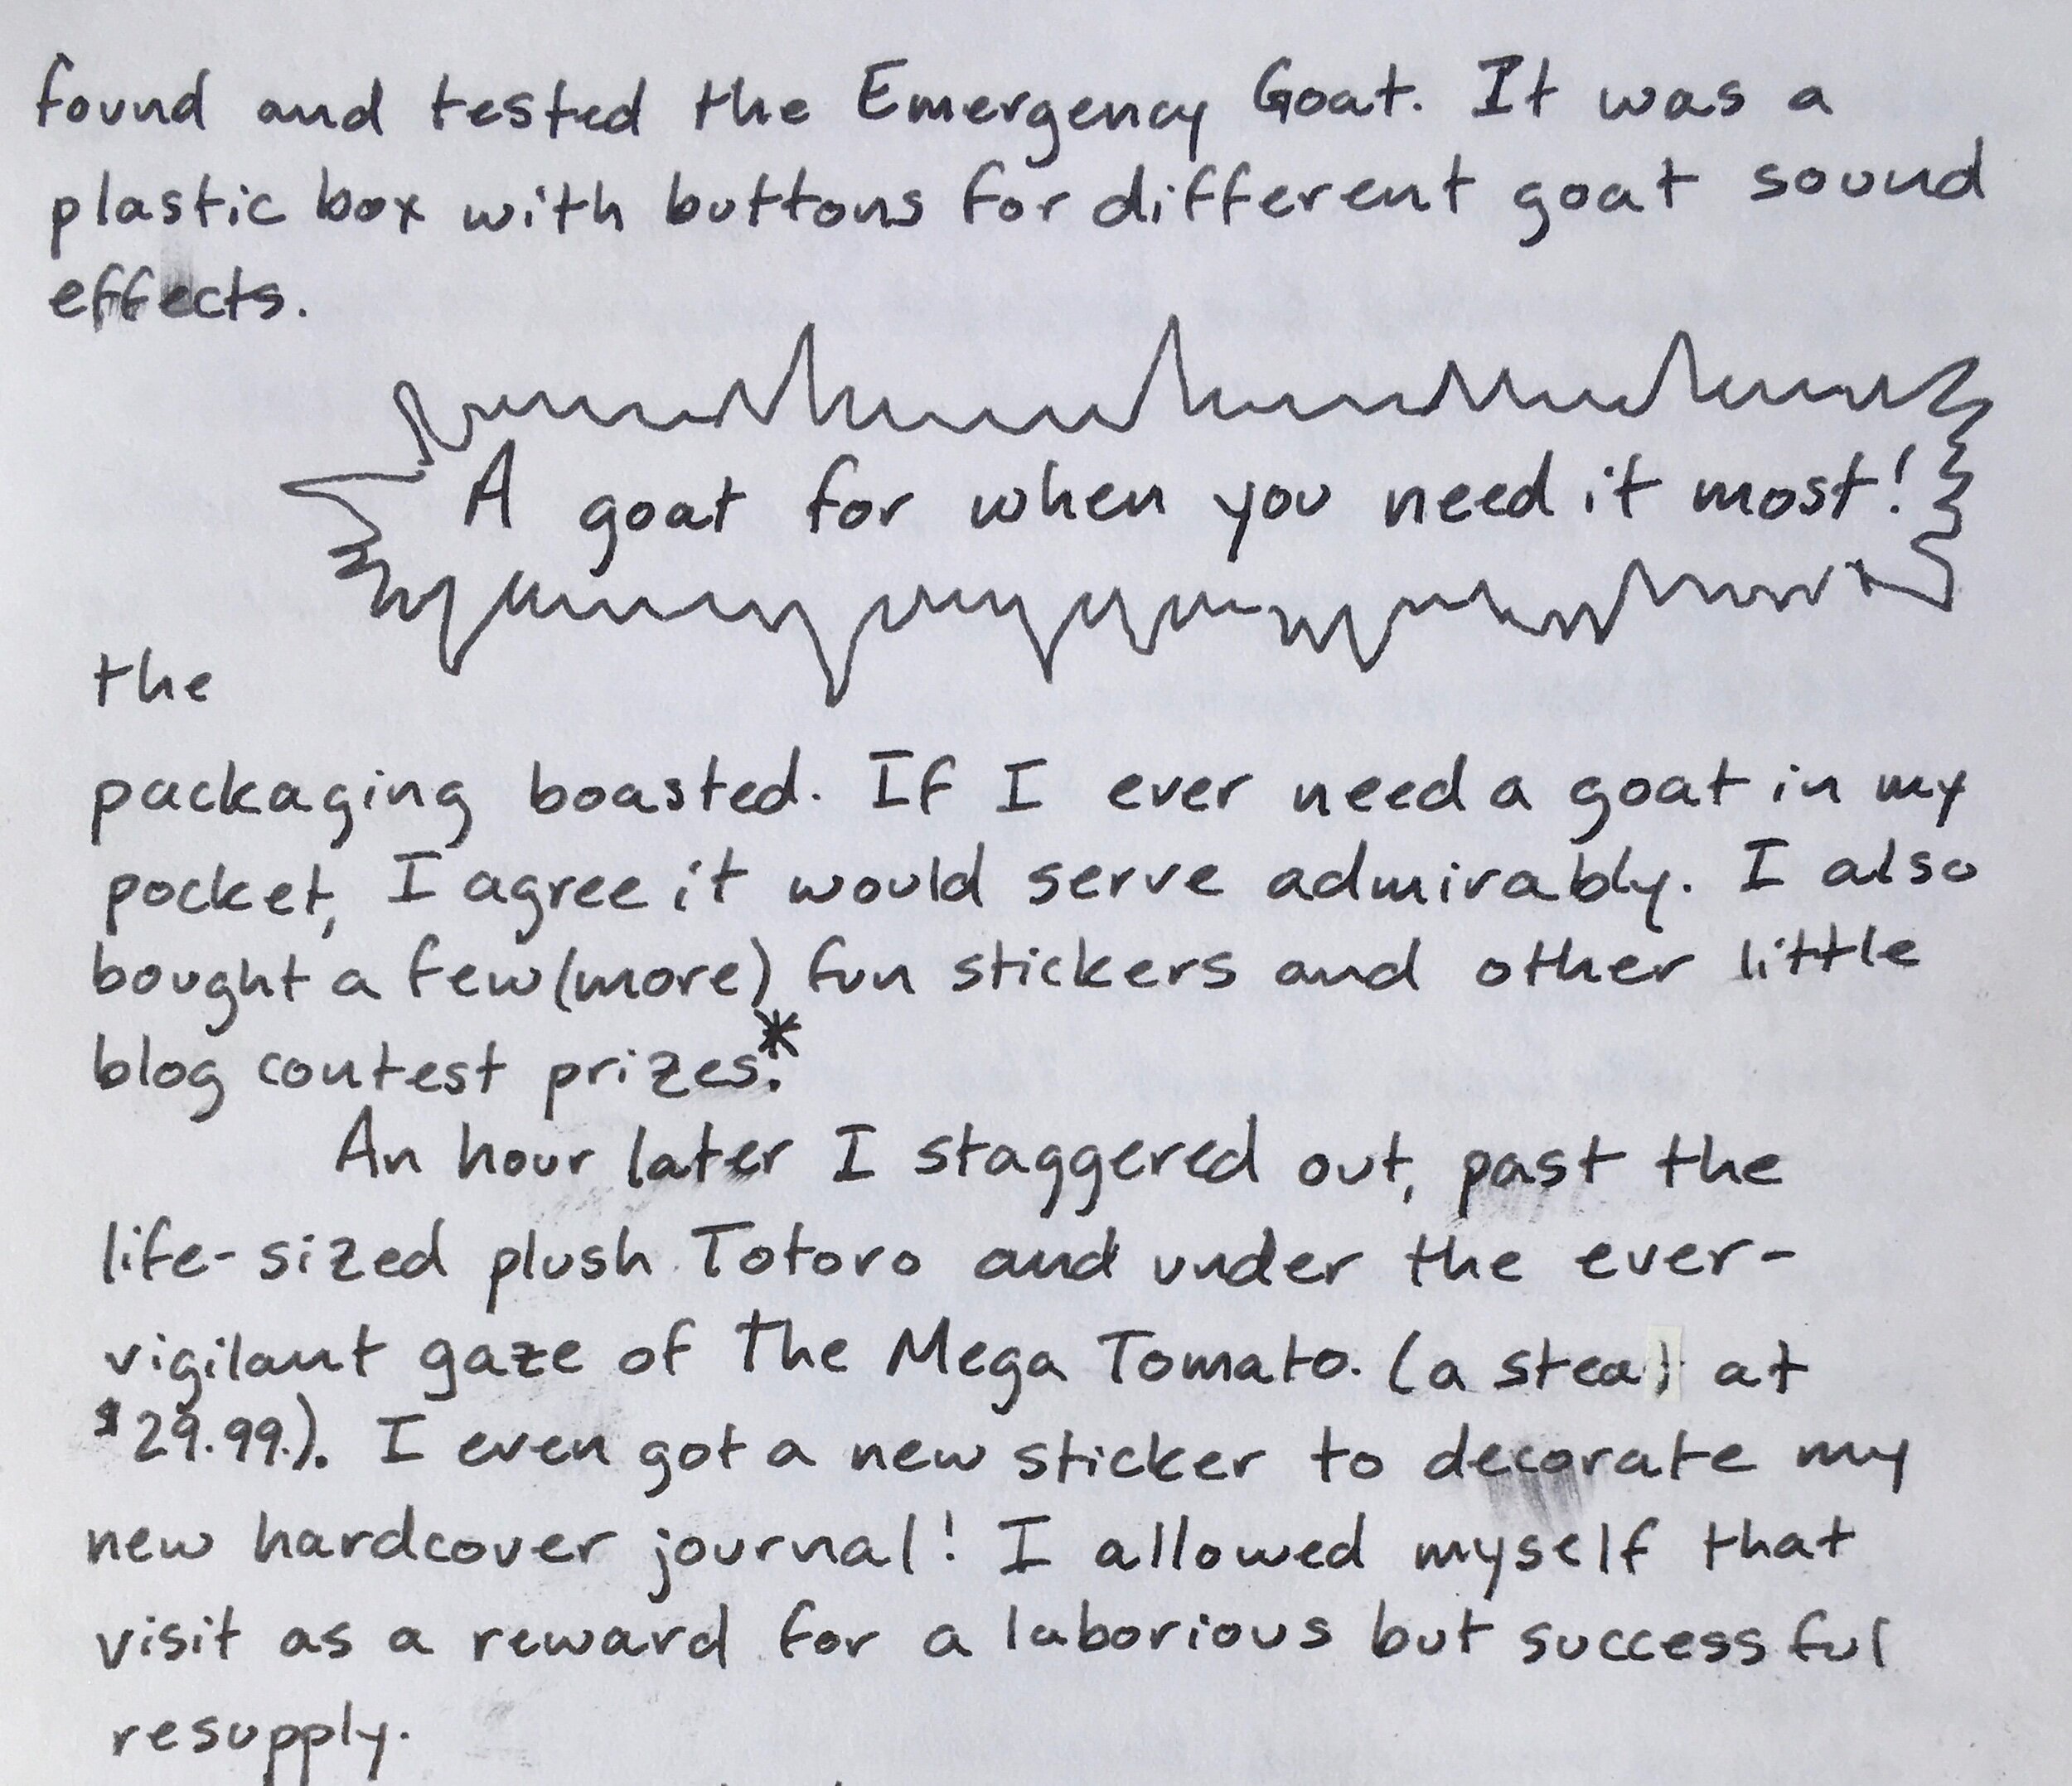 found and tested the Emergency Goat. It was a
plastic box with buttons for different goat sound
effects.
A goat for when you need it most!
the
packaging boasted. If I ever need a goat in my
pocket, I agree it would serve admirably. I also
bought a few (more) fun stickers and other little
blog contest prizes.*
An hour later I staggered out, past the
life-sized plush Totoro and under the ever-
vigilant gaze of the Mega Tomato. (a steal at
$29.99.). I even got a new sticker to decorate my
new hardcover journal! I allowed myself that
visit as a reward for a laborious but successful
resupply.